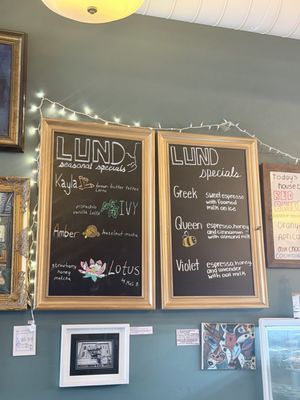 LUND
seasonal specials
Kayla
brown butter toffee
latte
pistachio
vanilla latte
IVY
Amber
hazelnut mocha
strawberry
honey
matcha
Lotus
LUND
specials
Greek
sweet espresso
with foamed
milk on ice
Queen
espresso, honey
and cinnamon
with almond milk
Violet
espresso, honey
and lavender
with oat milk
Today's
house
RED